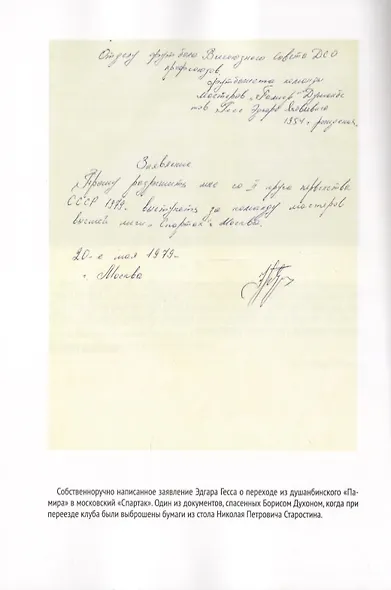 Отделу футбола Всесоюзного Совета ДСО
профсоюзов,
футболиста команды
мастеров "Памир" Душанбе
Гесс Эдгара Яковлевича
1954 г. рождения.
Заявление
Прошу разрешить мне со II круга первенства
СССР 1979г. выступать за команду мастеров
высшей лиги "Спартак" г. Москва.
20-е мая 1979г.
г. Москва
Собственноручно написанное заявление Эдгара Гесса о переходе из душанбинского «Па-
мира» в московский «Спартак». Один из документов, спасенных Борисом Духоном, когда при
переезде клуба были выброшены бумаги из стола Николая Петровича Старостина.